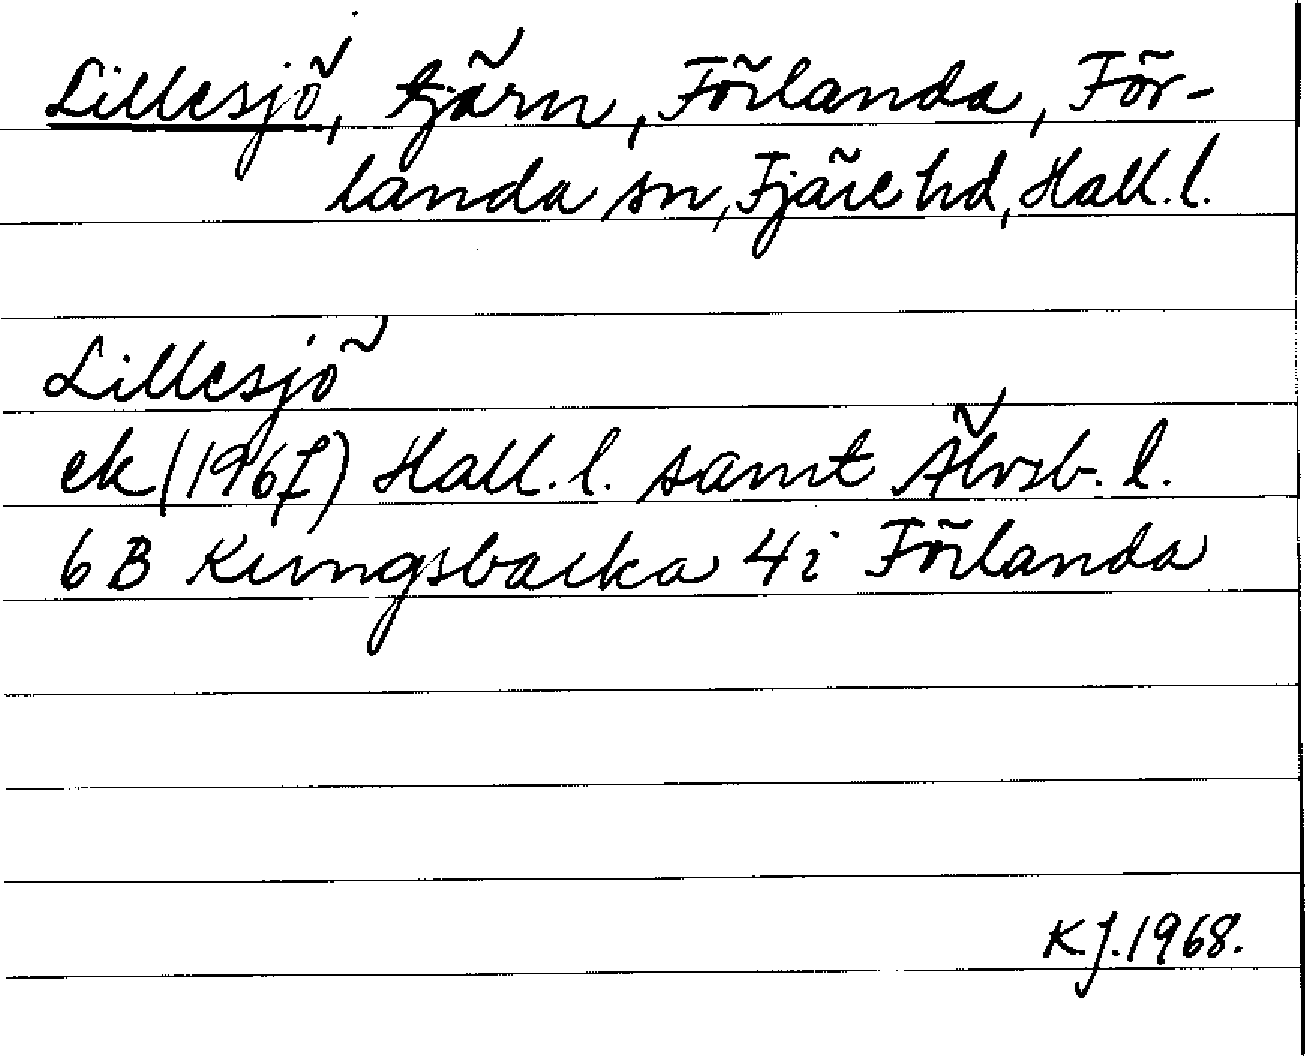 Lillesjö, tjärn, Förlanda, För-
landa sn, Fjäre hd, Hall. l.
Lillesjö
ek (1967) Hall. l. samt Älvsb. l.
6B Kungsbacka 4i Förlanda
KJ. 1968.